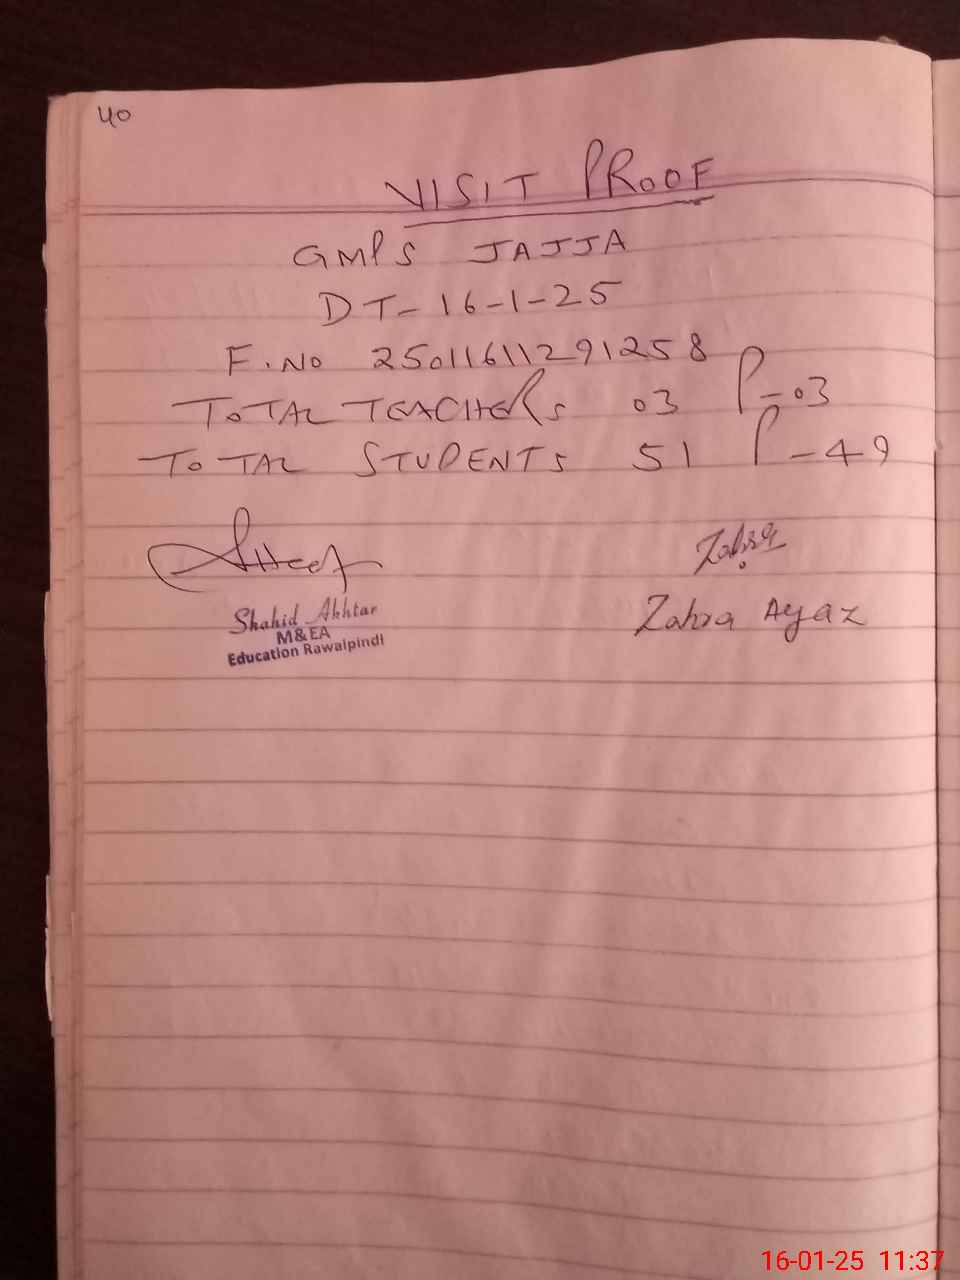 40
VISIT PROOF
GMPS JAJJA
DT-16-1-25
F.NO 25011611291258
TOTAL TEACHERS 03 P-03
TOTAL STUDENTS 51 P-49
Zahra
Shahid Akhtar
M&EA
Education Rawalpindi
Zahra Ayaz
16-01-25 11:37